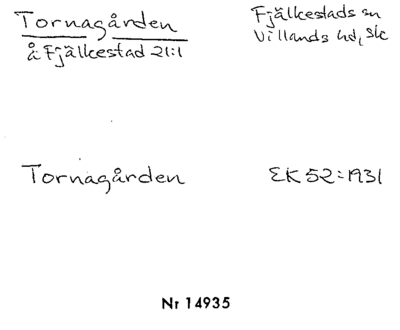 Tornagården
å Fjälkestad 21:1
Fjälkestads sn
Villands hd, Sk
Tornagården
EK 52:1931
Nr 14935